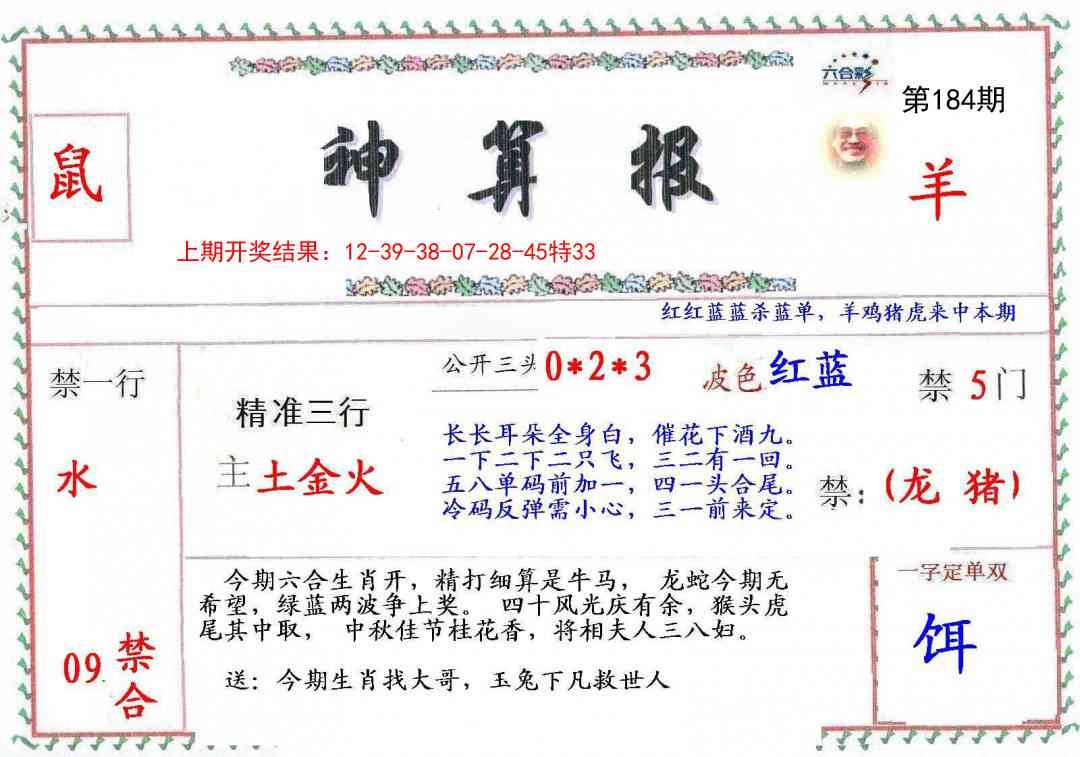 六合彩
第184期
鼠
神算报
羊
上期开奖结果：12-39-38-07-28-45特33
红红蓝蓝杀蓝单，羊鸡猪虎来中本期
禁一行
公开三头 0*2*3
波色 红蓝
禁 5 门
精准三行
主 土金火
水
长长耳朵全身白，催花下酒九。
一下二下二只飞，三二有一回。
五八单码前加一，四一头合尾。
冷码反弹需小心，三一前来定。
禁：(龙 猪)
今期六合生肖开，精打细算是牛马， 龙蛇今期无
希望，绿蓝两波争上奖。 四十风光庆有余，猴头虎
尾其中取， 中秋佳节桂花香，将相夫人三八妇。
送：今期生肖找大哥，玉兔下凡救世人
一字定单双
饵
09 禁合